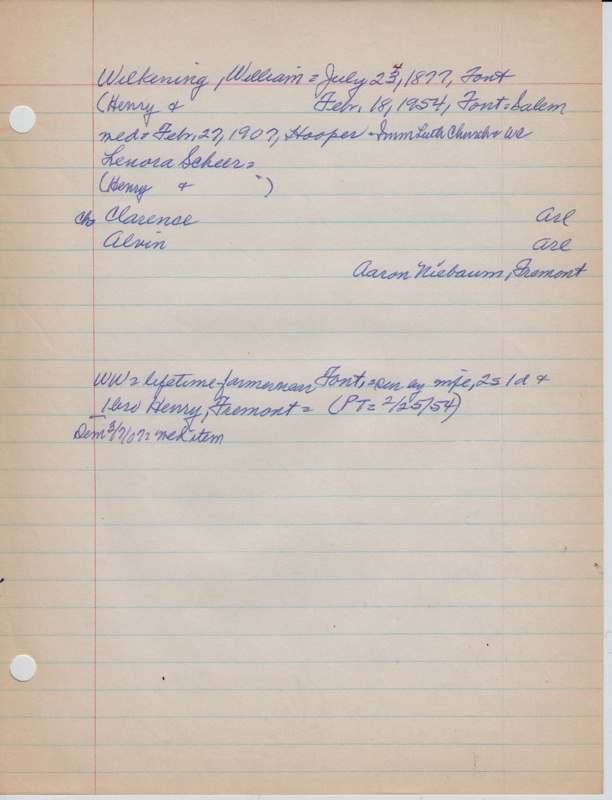 Wilkening, William = July 24, 1877, Font
(Henry & Febr. 18, 1954, Font = Salem
med = Febr. 27, 1907, Hooper - Imm Luth Church &
Lenora Scheer =
(Henry & " )
Ch = Clarence Arl
Alvin Arl
Aaron Niebaum, Fremont
WW = lifetime farmer near Font, = sur by wife, 2s 1d &
1 bro Henry, Fremont = (PT = 2/25/54)
Dem 3/7/07 = wed item